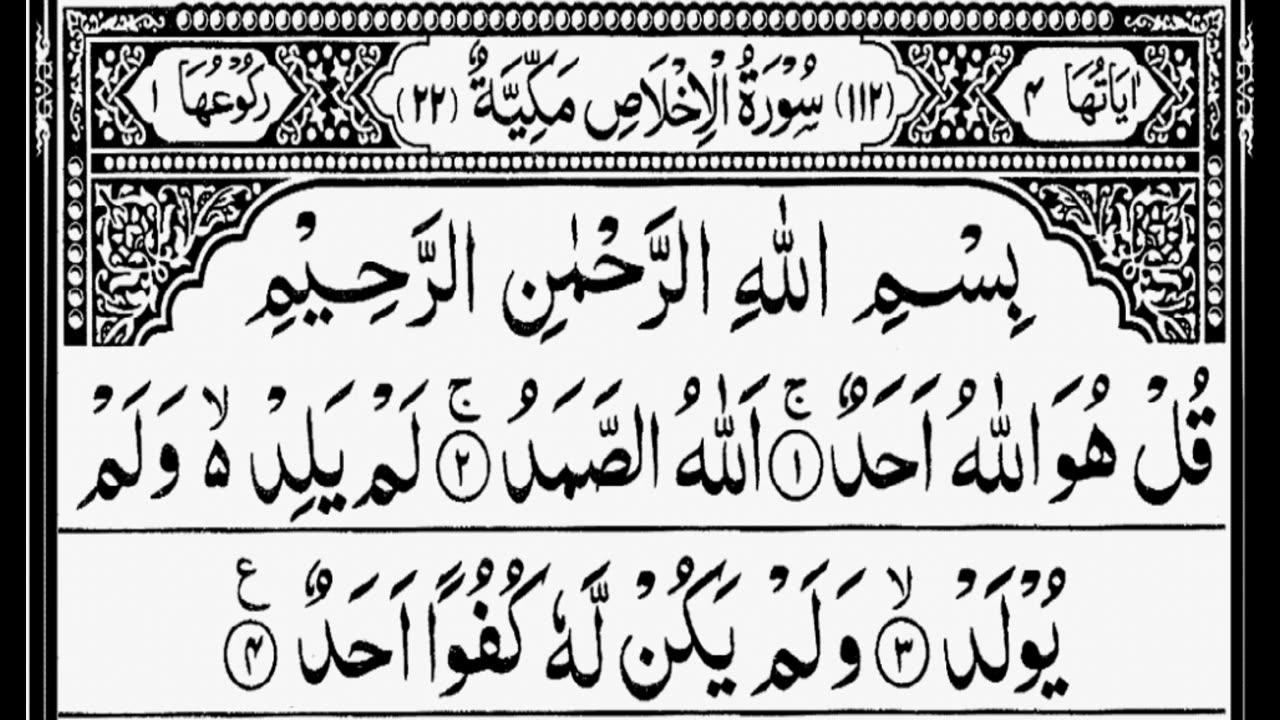 اٰيَاتُهَا ۴ (۱۱۲) سُوْرَةُ الْاِخْلَاصِ مَكِّيَّةٌ (۲۲) رَكُوْعُهَا ۱
بِسْمِ اللّٰهِ الرَّحْمٰنِ الرَّحِيْمِ
قُلْ هُوَ اللّٰهُ اَحَدٌ ۚ ﴿۱﴾ اَللّٰهُ الصَّمَدُ ۚ ﴿۲﴾ لَمْ يَلِدْ ۙ۬ وَلَمْ
يُوْلَدْ ۙ ﴿۳﴾ وَلَمْ يَكُنْ لَّهٗ كُفُوًا اَحَدٌ ﴿۴﴾ ع